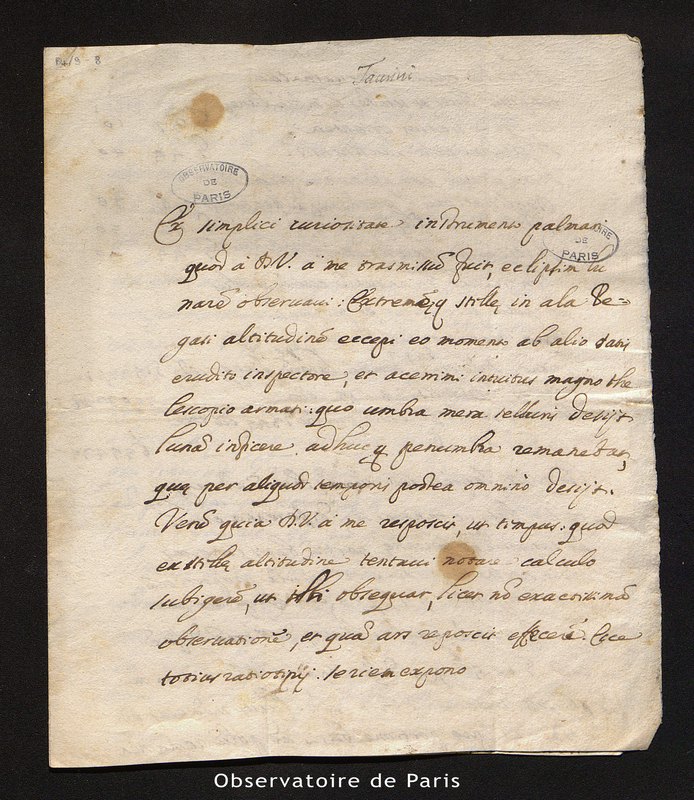 B4/9 - 8
Taurini
OBSERVATOIRE
DE
PARIS
Ex simplici curiositate instrumento palmari
DE
PARIS
quod à D.V. a me trasmissũ fuit, eclipsim lu
narẽ observavi: Extremęq stellę in ala Pe=
gasi altitudinẽ eccepi eo momento ab alio satis
erudito inspectore, et acerrimi intuitus magno the
lescopio armati: quo umbra mera telluris desijt
lunã inficere. adhuc q penumbra remanebat,
quę per aliquod temporis postea omnino desijt.
Verũ quia D.V. a me resposcit, ut timpus: quod
ex stellę altitudine tentavi notare calculo
subigerẽ, ut illi obsequar, licet nõ exactissimã
observationẽ, et quã ars reposcit effecerĩ. Ecce
totius ratiocinij seriem expono
Observatoire de Paris